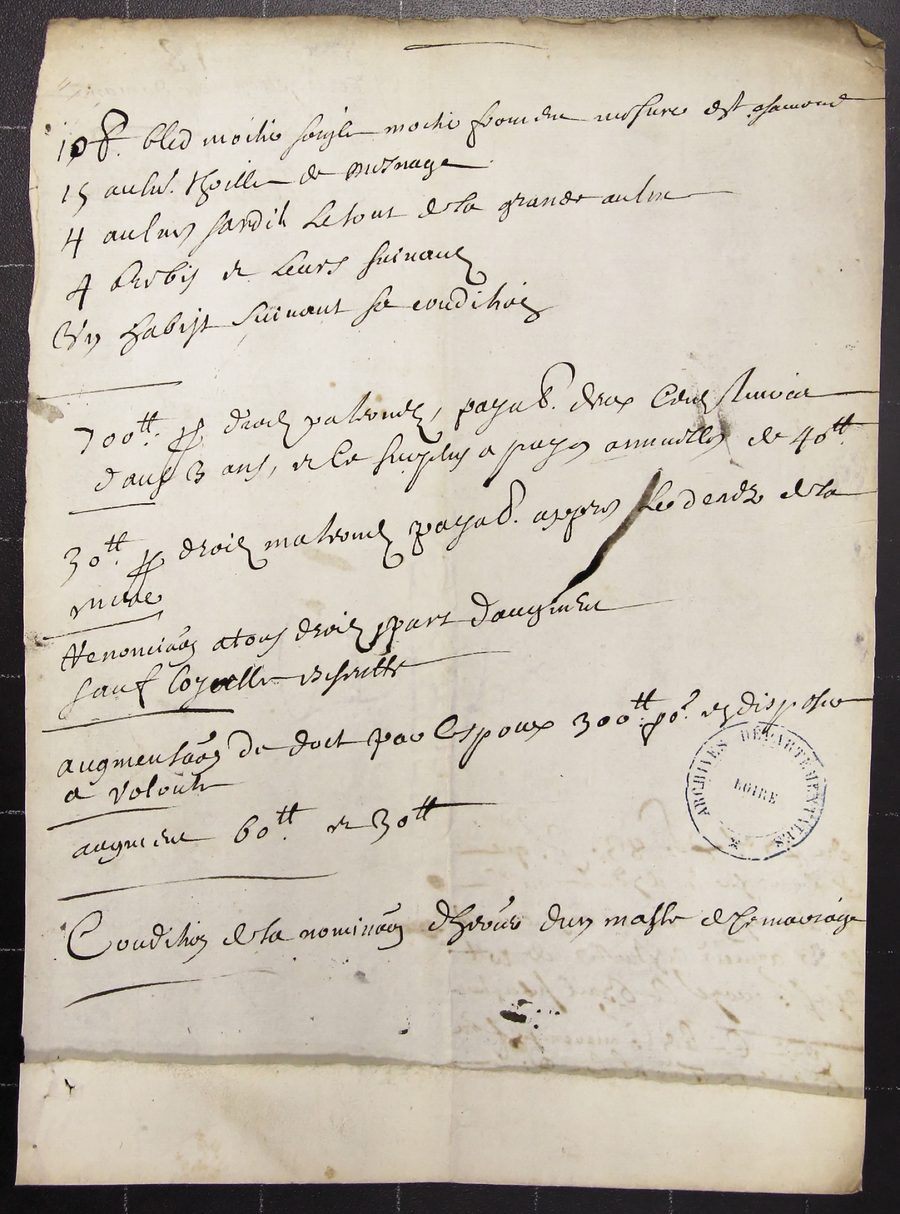 10 b. bled moitié seigle moitié froment mesure de St chamond
15 auln. thoille de mesnage
4 aulnes sardit le tout de la grande aulne
4 brebis et leurs suivans
Un habist suivant sa condition
700tt p droicts paternels, payab. deux cens livres
dans 3 ans, et le surplus a payes annuelles de 40tt
30tt p droict maternels payab. appres le decedz de la
mere
Renonciaon a tous droicts part d'augment
sauf loyalle escheutte
augmentaon de dot par l'espoux 300tt po.r en disposer
a volonte
augment 60tt et 30tt
Condition de la nominaon d'heritier d'un masle de ce mariage
ARCHIVES DÉPARTEMENTALES
LOIRE